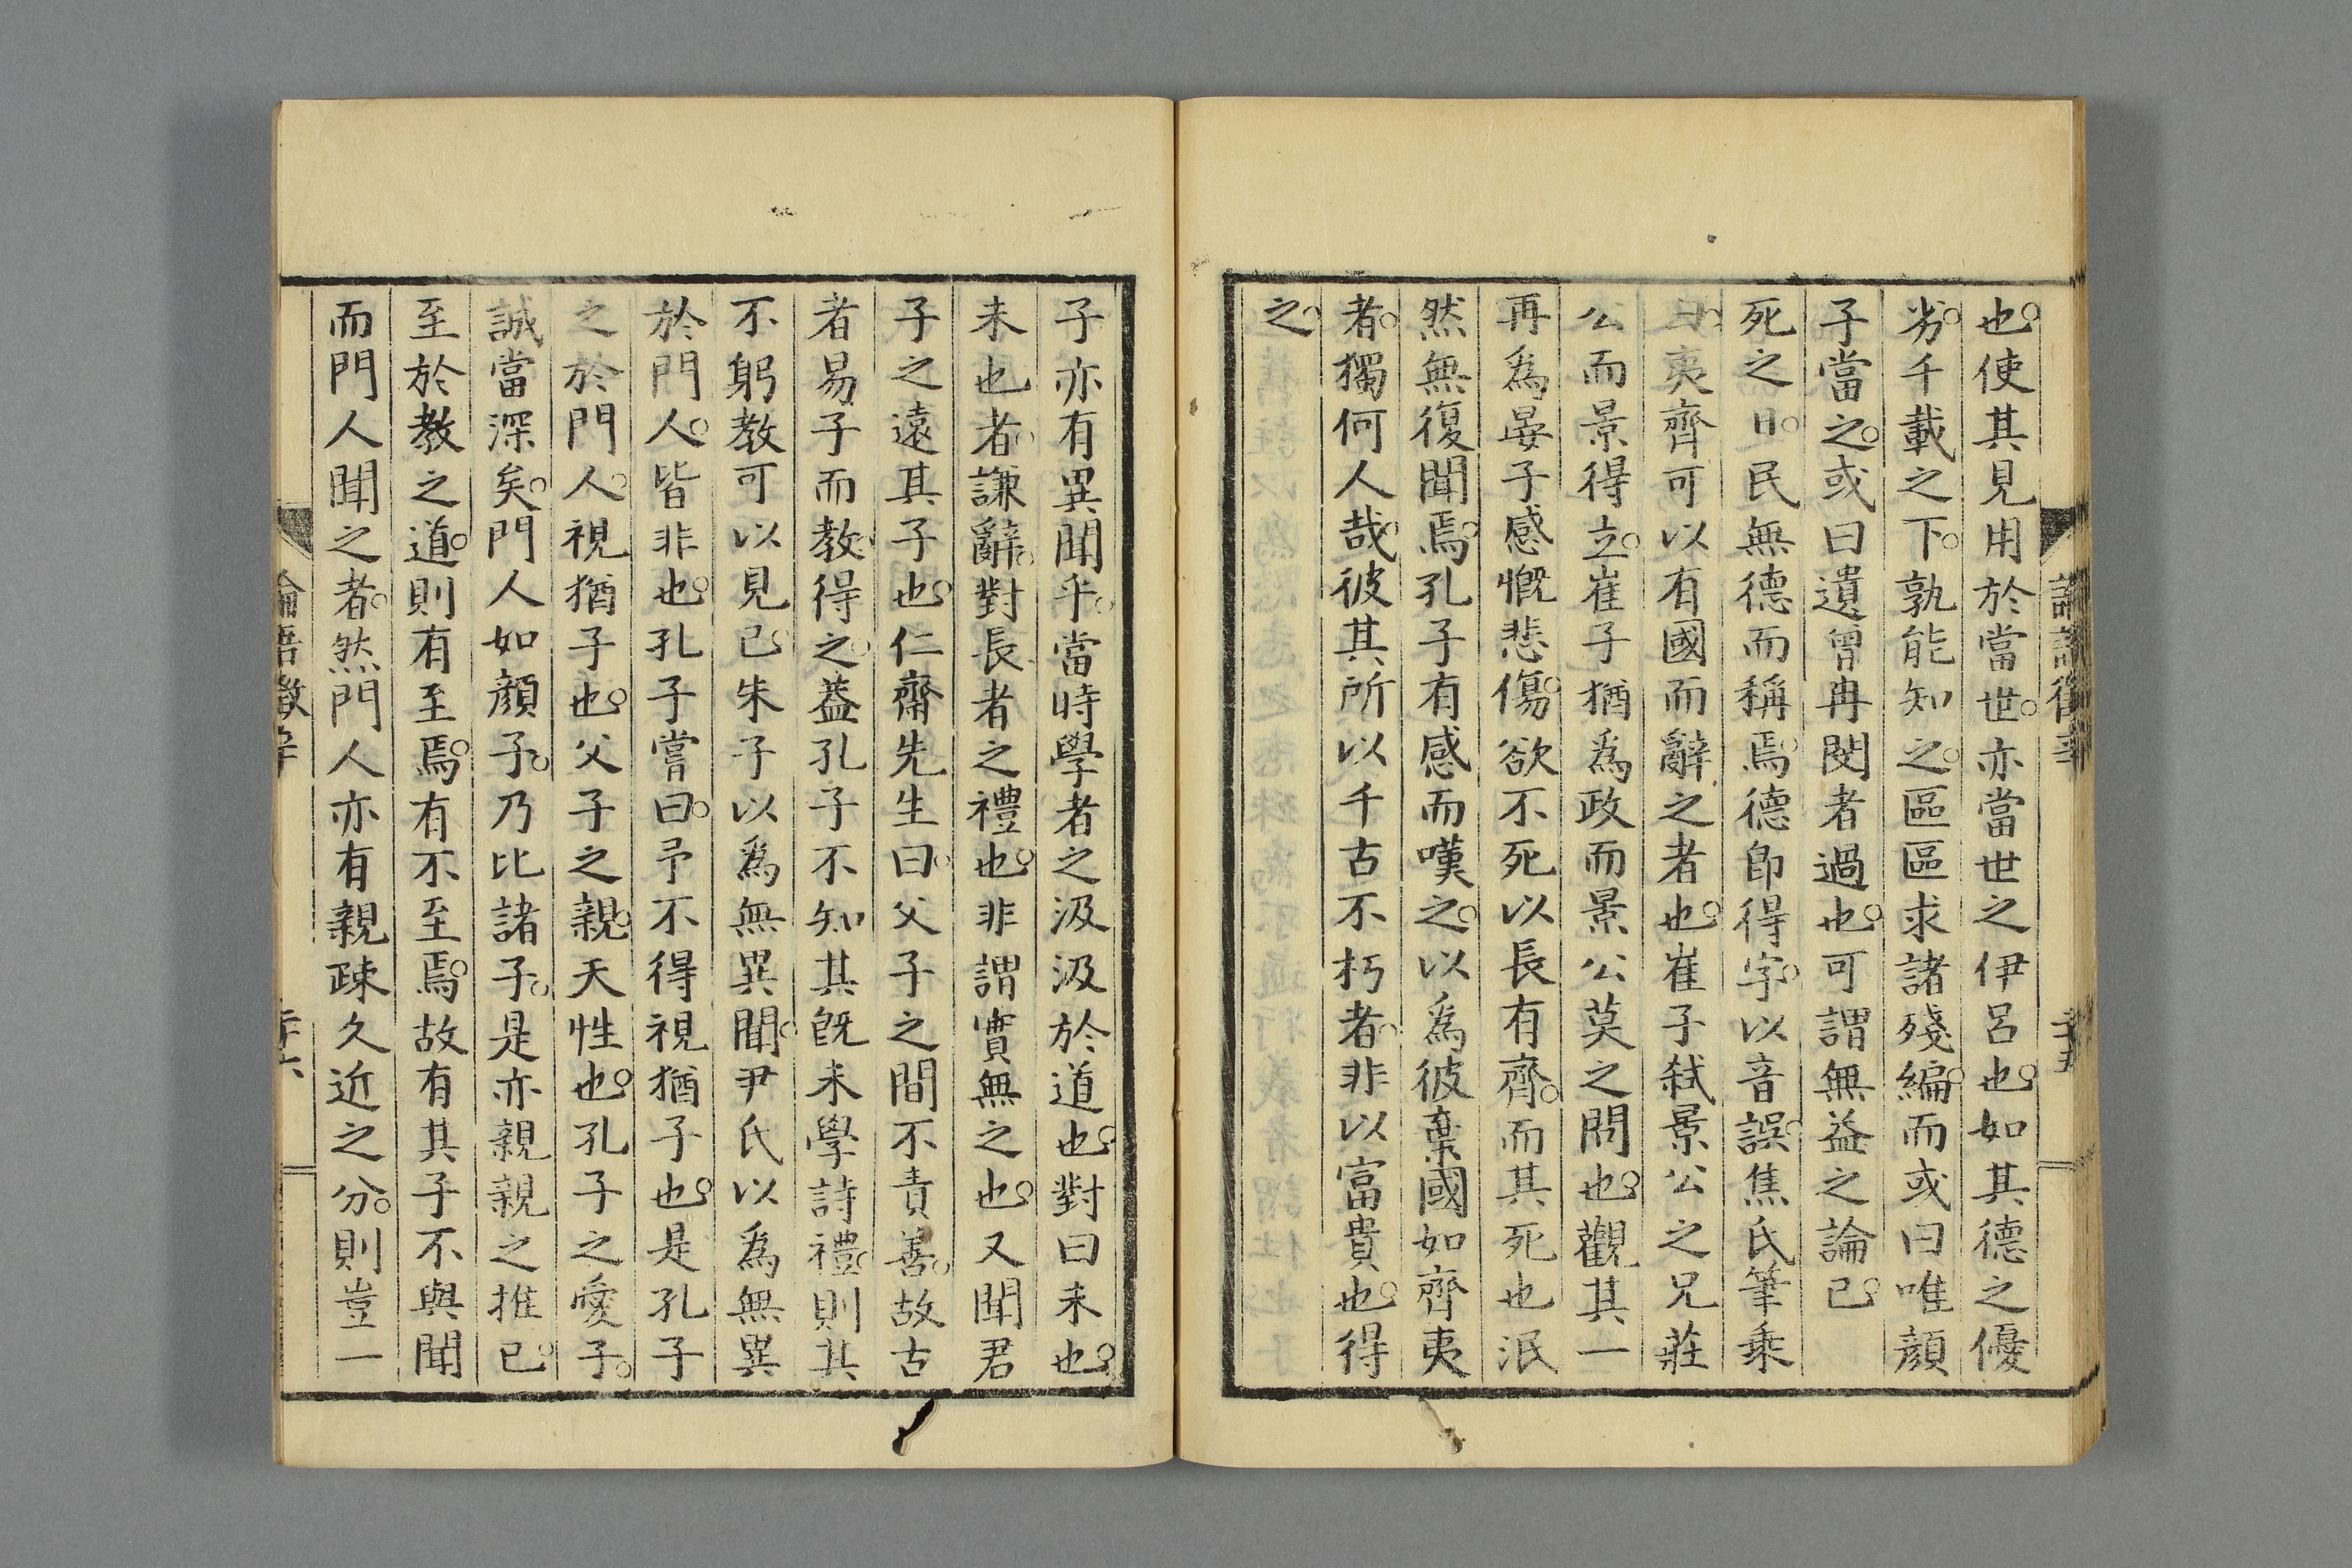 也使其見用於當世亦當世之伊呂也如其德之優
劣千載之下孰能知之區區求諸殘編而或曰唯顔
子當之或曰遺曾冉閔者過也可謂無益之論已
死之日民無德而稱焉德卽得字以音誤焦氏筆乘
曰夷齊可以有國而辭之者也崔子弑景公之兄莊
公而景得立崔子猶爲政而景公莫之問也觀其一
再爲晏子感慨悲傷欲不死以長有齊而其死也泯
然無復聞焉孔子有感而嘆之以爲彼棄國如齊夷
者獨何人哉彼其所以千古不朽者非以富貴也得
之
子亦有異聞乎當時學者之汲汲於道也對曰未也
未也者謙辭對長者之禮也非謂實無之也又聞君
子之遠其子也仁齋先生曰父子之間不責善故古
者易子而教得之蓋孔子不知其旣未學詩禮則其
不躬教可以見已朱子以爲無異聞尹氏以爲無異
於門人皆非也孔子嘗曰予不得視猶子也是孔子
之於門人視猶子也父子之親天性也孔子之愛子
誠當深矣門人如顔子乃比諸子是亦親親之推已
至於教之道則有至焉有不至焉故有其子不與聞
而門人聞之者然門人亦有親疎久近之分則豈一